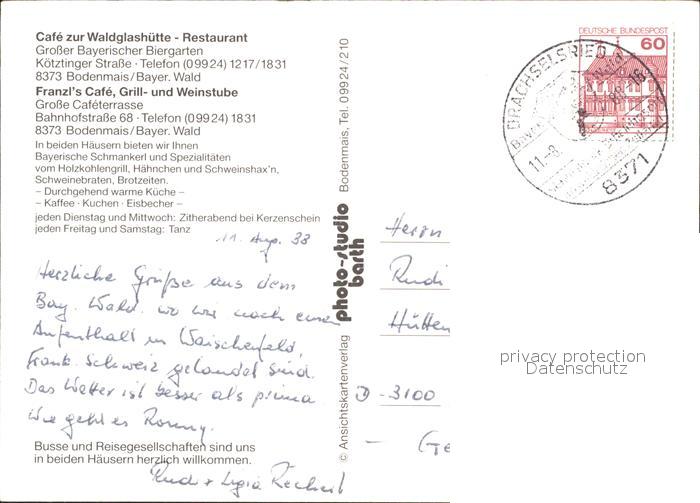 Café zur Waldglashütte - Restaurant
Großer Bayerischer Biergarten
Kötztinger Straße · Telefon (09924) 1217/1831
8373 Bodenmais/Bayer. Wald
Franzl's Café, Grill- und Weinstube
Große Caféterrasse
Bahnhofstraße 68 · Telefon (09924) 1831
8373 Bodenmais/Bayer. Wald
In beiden Häusern bieten wir Ihnen
Bayerische Schmankerl und Spezialitäten
vom Holzkohlengrill, Hähnchen und Schweinshax'n,
Schweinebraten, Brotzeiten.
– Durchgehend warme Küche –
– Kaffee · Kuchen · Eisbecher –
jeden Dienstag und Mittwoch: Zitherabend bei Kerzenschein
jeden Freitag und Samstag: Tanz
11. Aug. 88
Herzliche Grüße aus dem
Bay. Wald. wo wir nach einem
Aufenthalt in Waischenfeld,
Fränk. Schweiz gelandet sind.
Das Wetter ist besser als prima.
Wie geht es Romy.
Busse und Reisegesellschaften sind uns
in beiden Häusern herzlich willkommen.
Rudi + Lygia
© Ansichtskartenverlag photo-studio barth Bodenmais, Tel. 09924/210
DEUTSCHE BUNDESPOST
60
DRACHSELSRIED
11.-8.
8371
Herrn
Rudi
Hütten
D-3100
- Ce
privacy protection
Datenschutz